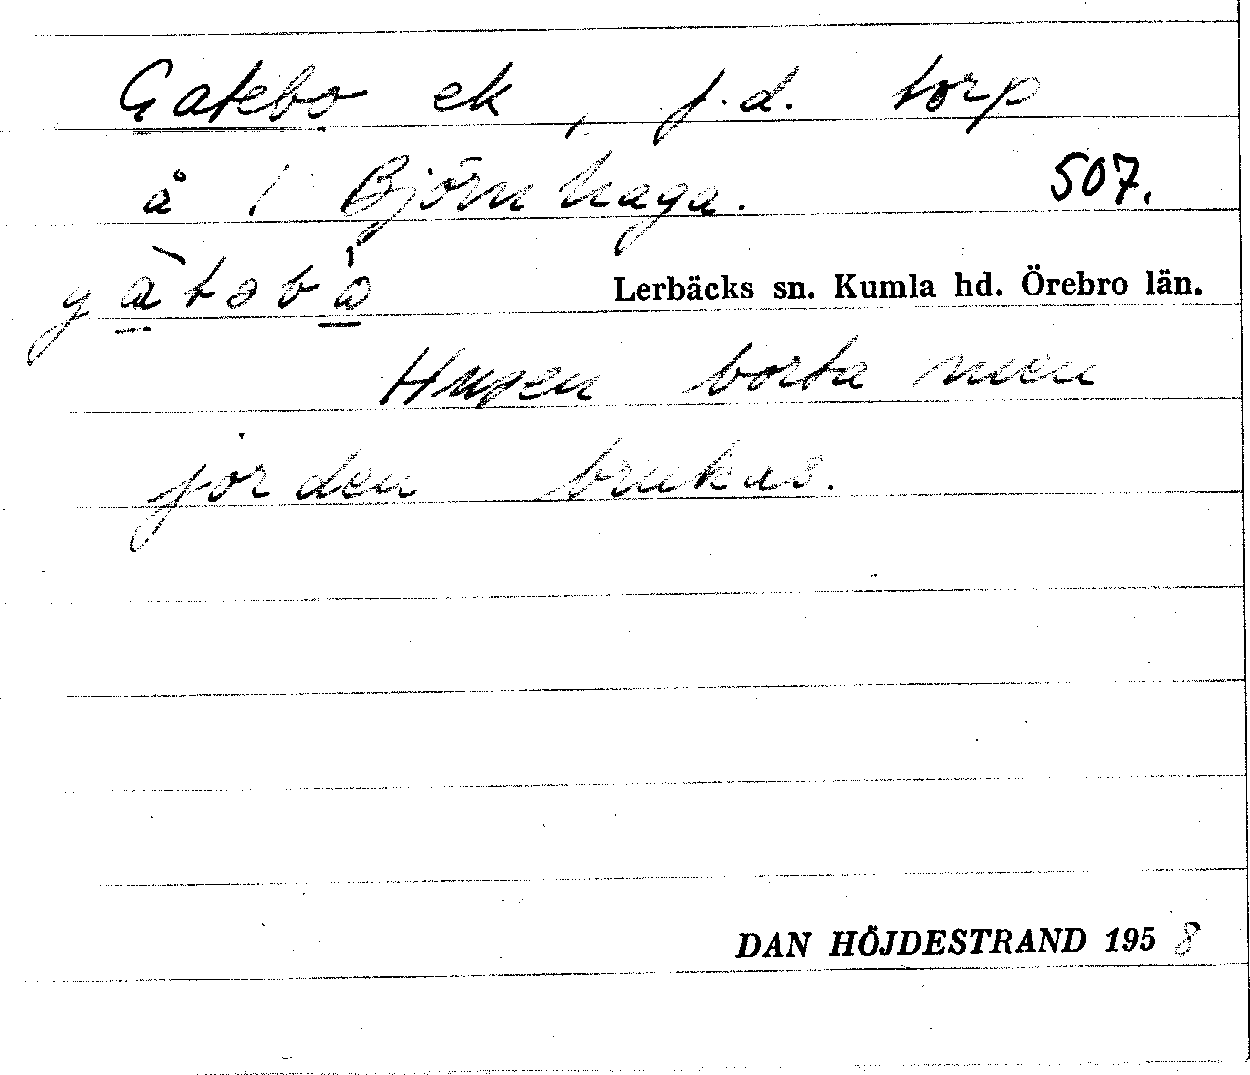 Gatebo ek, f.d. torp
å 1 Björnhaga. 507.
gàtəbó Lerbäcks sn. Kumla hd. Örebro län.
Husen borta men
jorden brukas.
DAN HÖJDESTRAND 1958